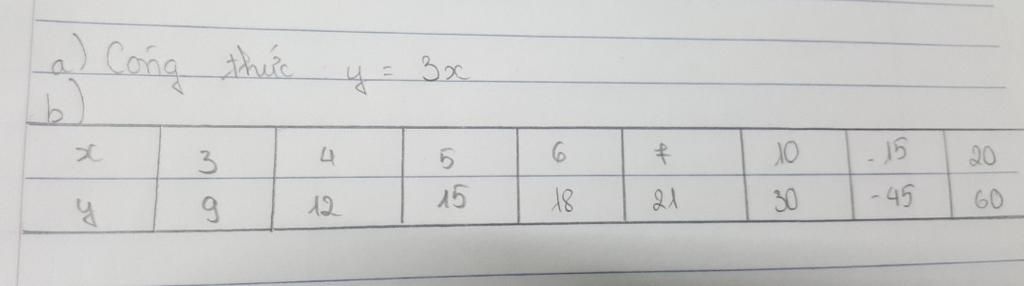 a) Công thức y = 3x
b)
x 3 4 5 6 7 10 -15 20
y 9 12 15 18 21 30 -45 60